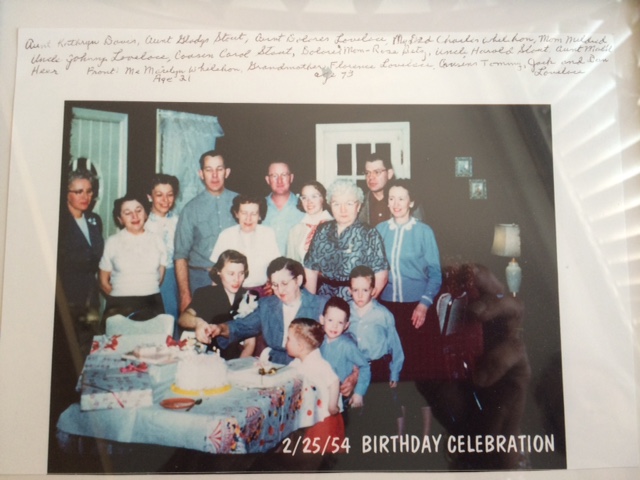 Aunt Kathryn Bauer, Aunt Gladys Stout, Aunt Dolores Lovelace, My Dad Charles Whelchon, Mom Mildred
Uncle Johnny Lovelace, Cousin Carol Stout, Dolores Mom-Rose, Uncle Harold Stout Aunt
Front: Me Marilyn Whelchon, Grandmother, Florence Lovelace, Cousins Tommy, Jack and
Age 21 age 73 Lovelace
2/25/54 BIRTHDAY CELEBRATION